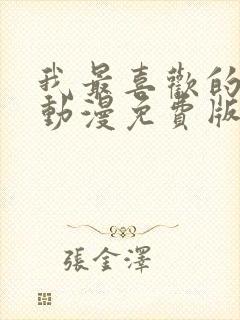 我最喜歡的
動漫免費版
張金澤